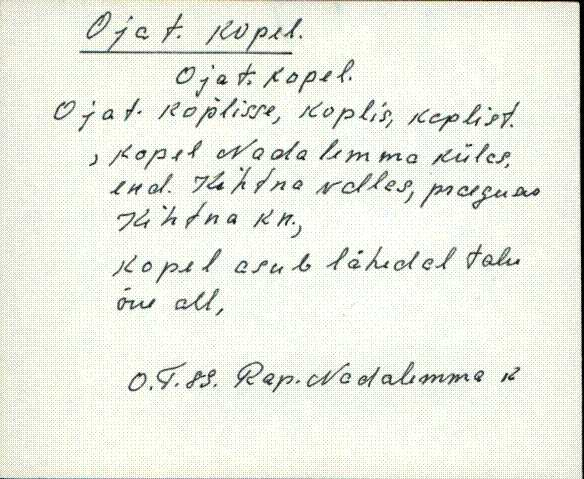 Ojat. Kopel.
Ojat. Kopel.
Ojat. Koplisse, Koplis, Koplist.
, Kopel Nadalemma külas,
end. Kihtna vallas, praegusø
Kihtna kn.,
Kopel asub lähedal talu
õue all,
O.T.89. Rap. Nadalemma k